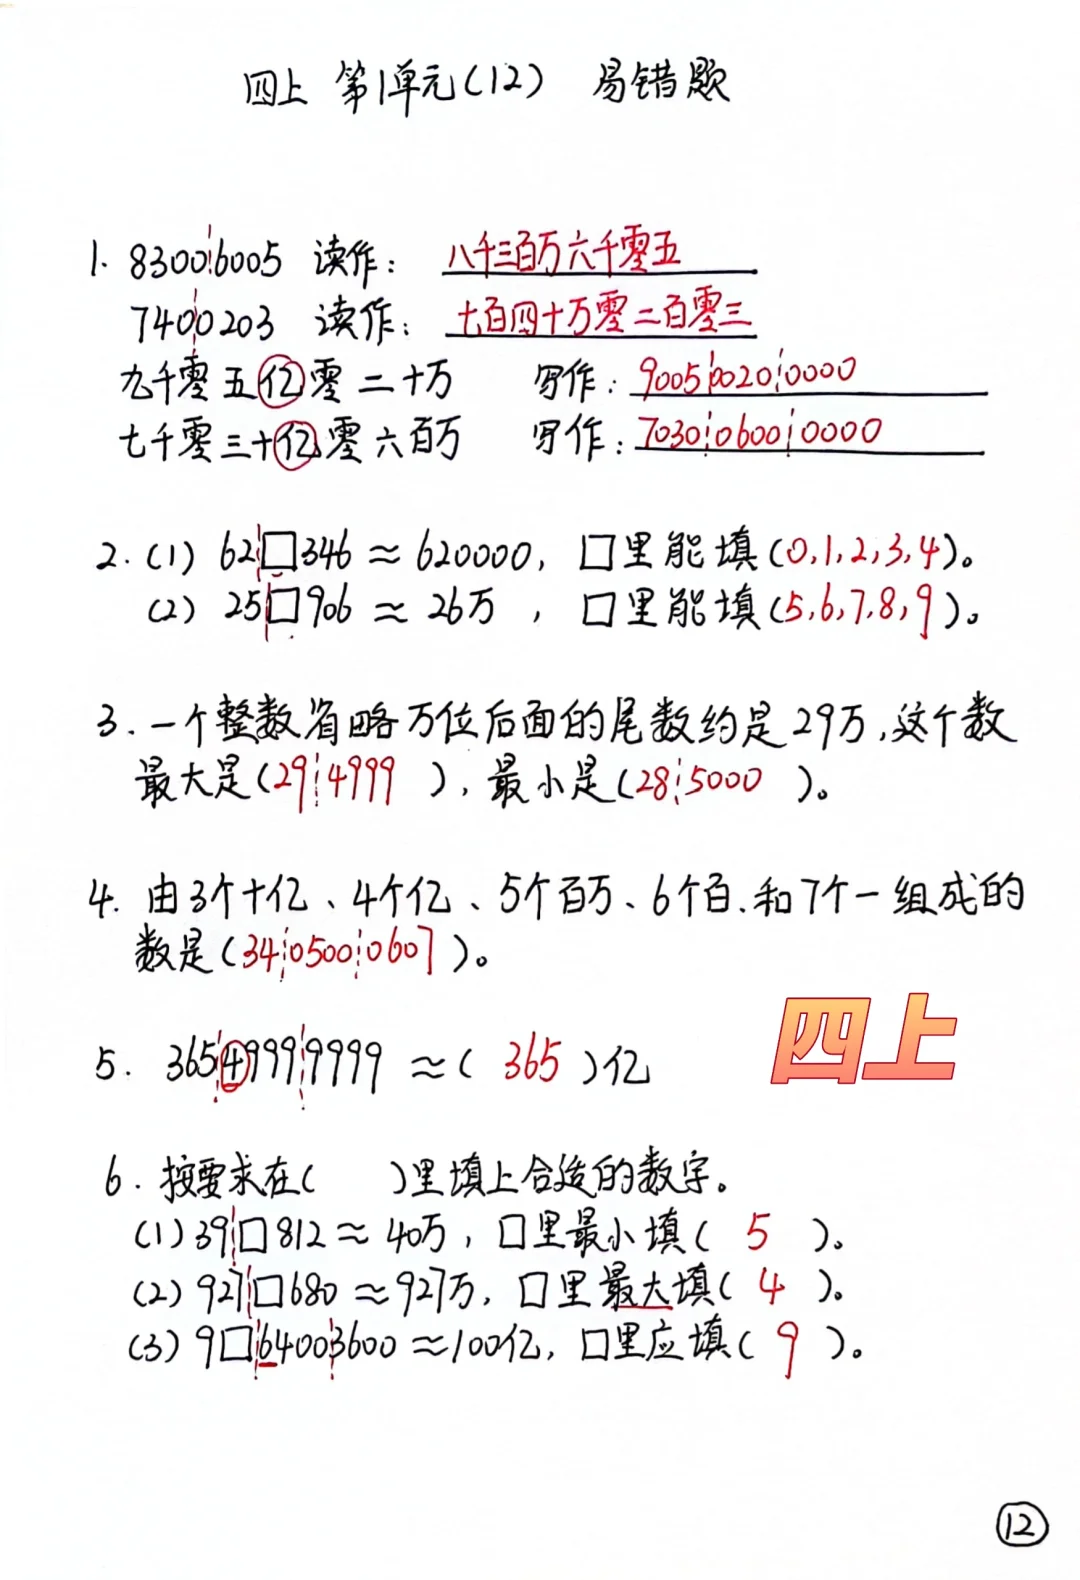 四上 第1单元(12) 易错题
1. 83006005 读作: 八千三百万六千零五
7400203 读作: 七百四十万零二百零三
九千零五亿零二十万 写作: 900500200000
七千零三十亿零六百万 写作: 703006000000
2. (1) 62□346≈620000, □里能填(0,1,2,3,4)。
(2) 25□906≈26万, □里能填(5,6,7,8,9)。
3. 一个整数省略万位后面的尾数约是29万,这个数
最大是(294999), 最小是(285000)。
4. 由3个十亿、4个亿、5个百万、6个百、和7个一组成的
数是(3405000607)。
5. 36549999999≈(365)亿
四上
6. 按要求在( )里填上合适的数字。
(1) 39□812≈40万, □里最小填(5)。
(2) 927□680≈927万, □里最大填(4)。
(3) 9□64003600≈100亿, □里应填(9)。
12